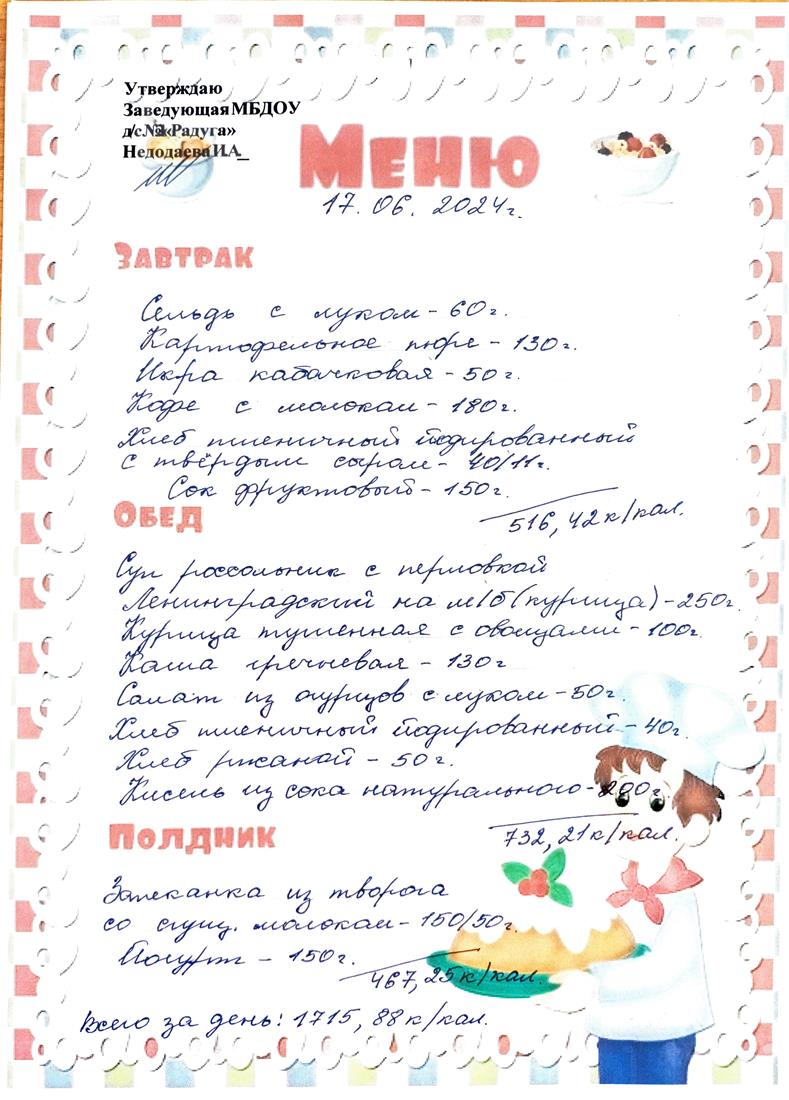 Утверждаю
Заведующая МБДОУ
д/с№2«Радуга»
Недодаева И.А_
Меню
17. 06. 2024г.
Завтрак
Сельдь с луком - 60г.
Картофельное пюре - 130г.
Икра кабачковая - 50г.
Кофе с молоком - 180г.
Хлеб пшеничный йодированный
с твёрдым сыром - 40/11г.
Сок фруктовый - 150г.
516,42к/кал.
Обед
Суп россольник с перловкой
Ленинградский на м/б (курица) - 250г.
Курица тушенная с овощами - 100г.
Каша гречневая - 130г
Салат из огурцов с луком - 50г.
Хлеб пшеничный йодированный - 40г.
Хлеб ржаной - 50г.
Кисель из сока натурального - 200г.
732,21к/кал.
Полдник
Запеканка из творога
со сгущ. молоком - 150/50г.
Йогурт - 150г.
467,25к/кал.
Всего за день: 1715,88к/кал.